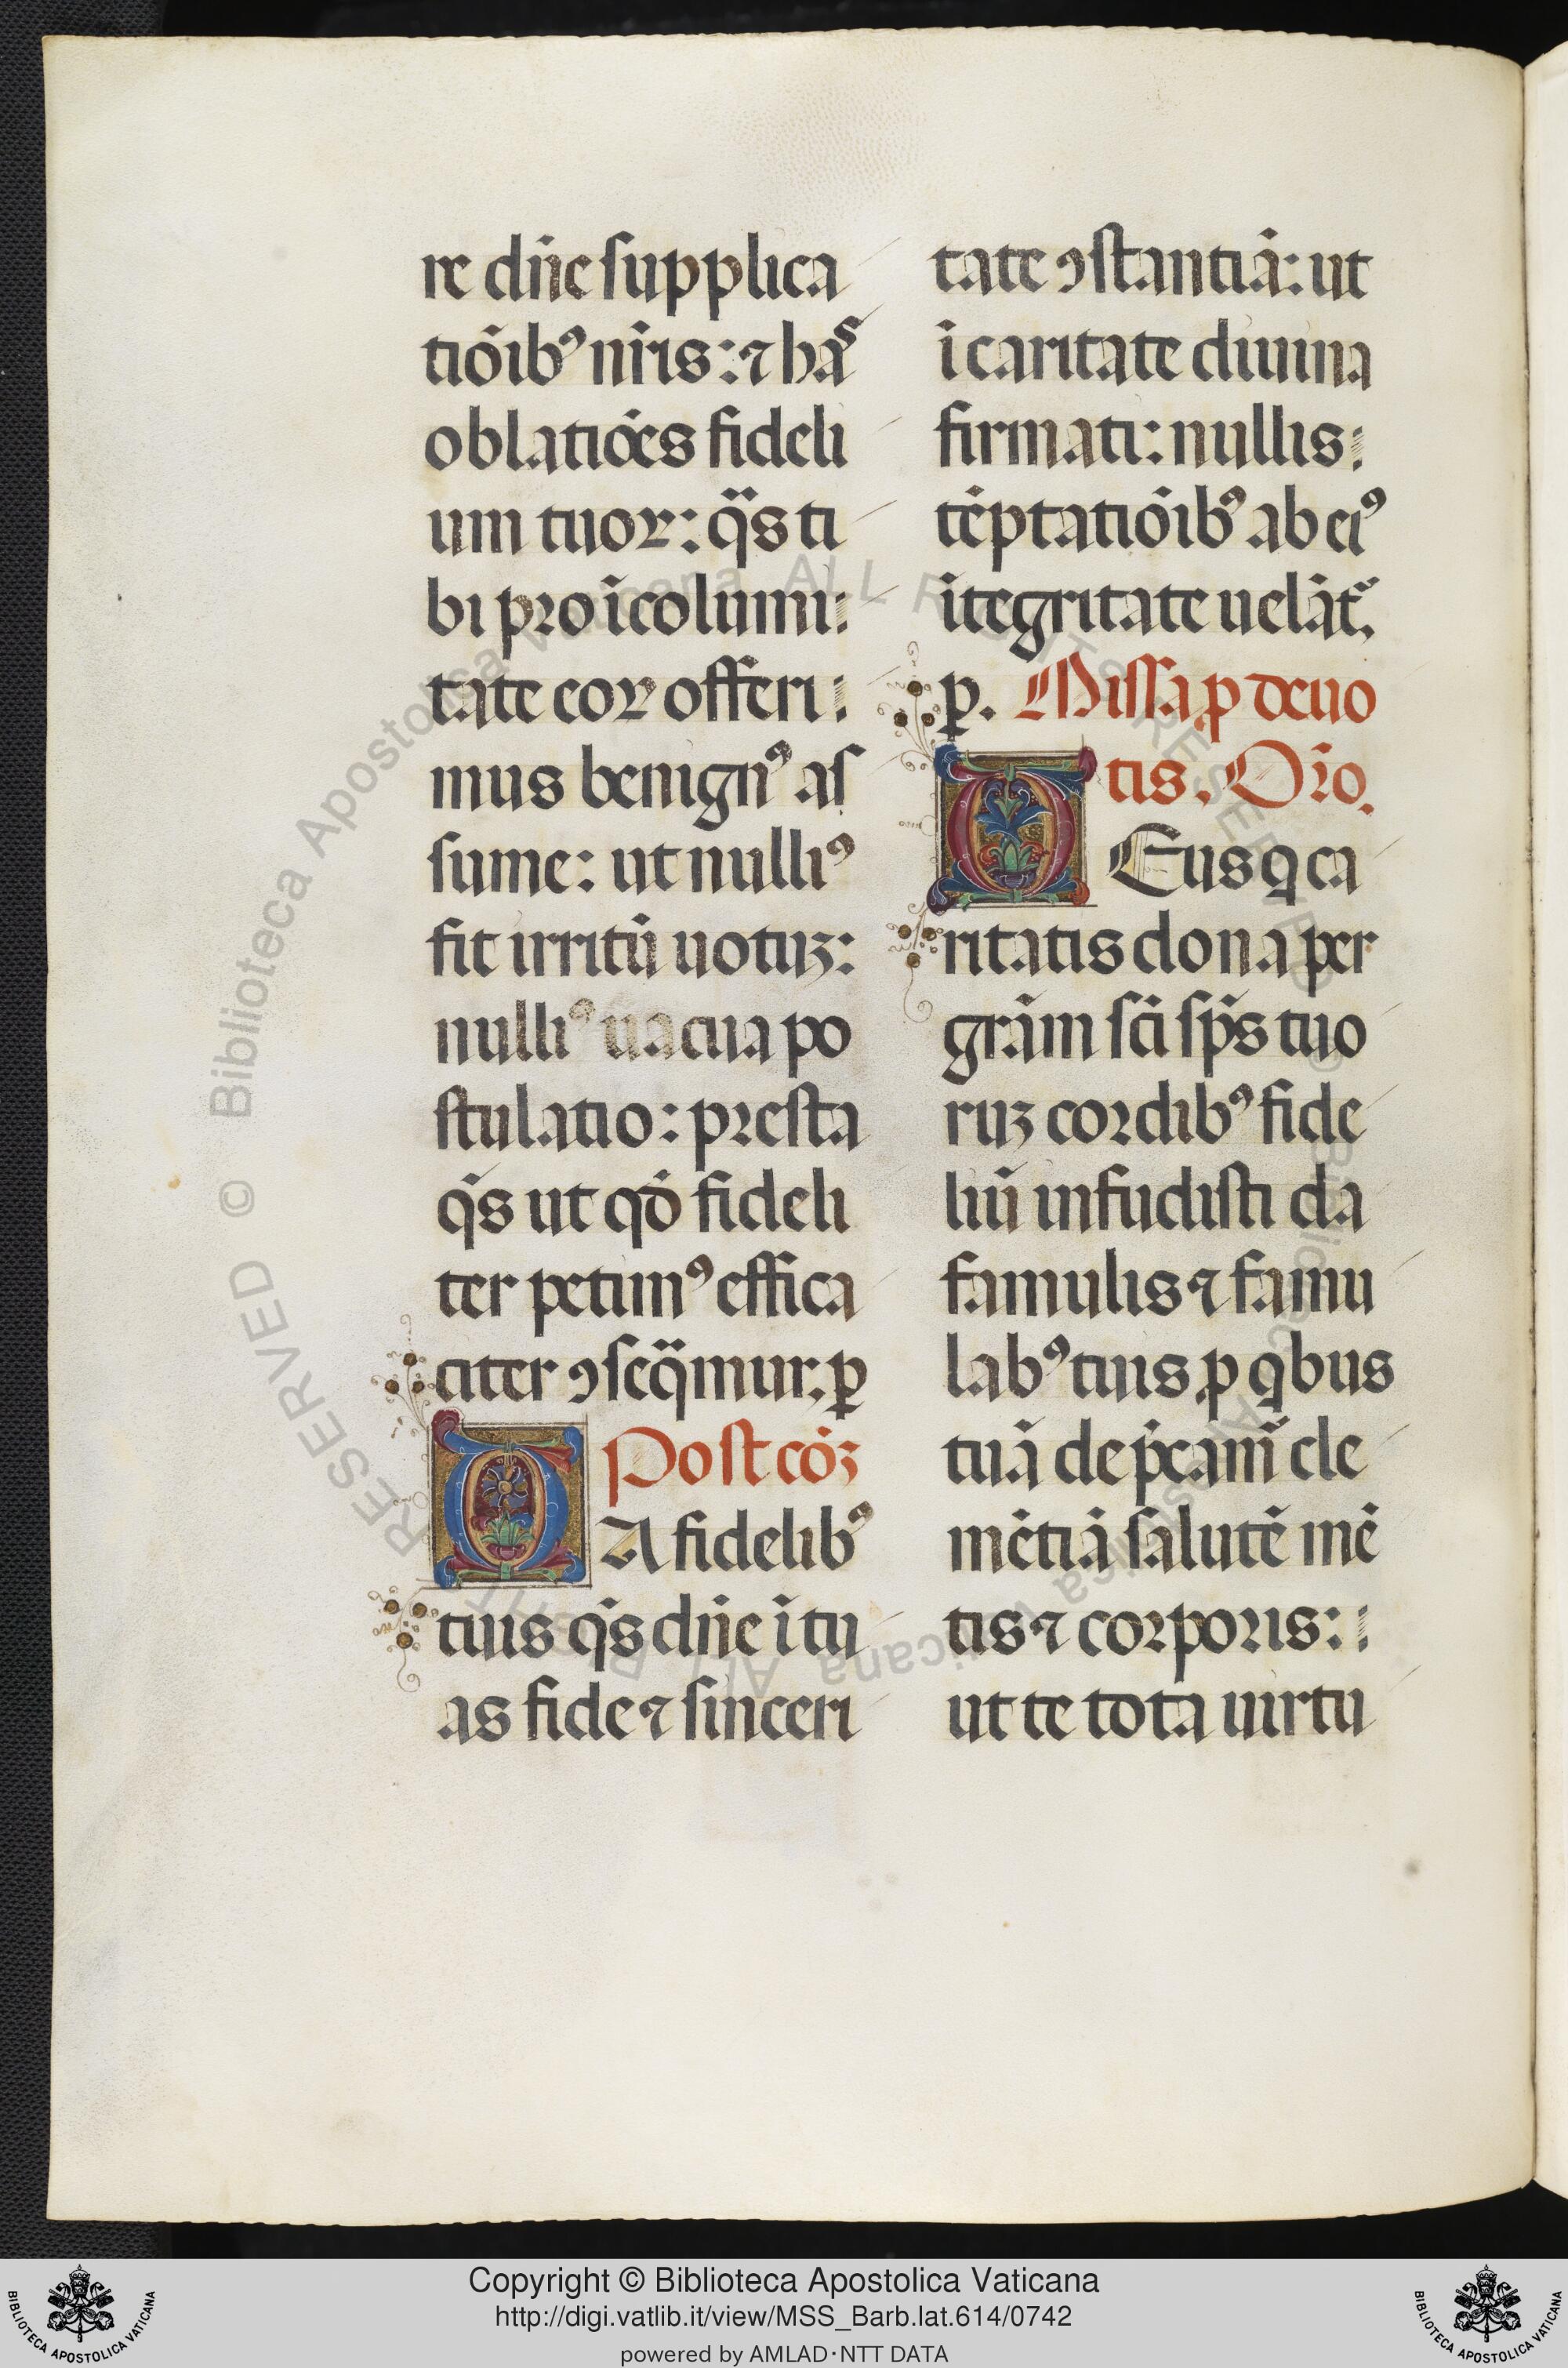 re dn̄e ſupplica
tiōibꝰ nr̄is: ⁊ haˢ
oblatiōes fideli
um tuoꝝ: q̄s ti
bi pꝛo īcolumi:
tate coꝝ offeri:
mus benignꝰ aſ
ſume: ut nulliꝰ
fit irritū uotuꝫ:
nulliꝰ uacua po
ſtulatio: pꝛeſta
q̄s ut qđ fideli
ter petimꝰ effica
citer ꝯſeq̄mur. ꝑ
Poſt cōꝫ
DA fidelibꝰ
tuis q̄s dn̄e ī tu
as fide ⁊ ſinceri
tate ꝯſtantiā: ut
ī caritate diuina
firmati: nullis:
tēptatiōibꝰ ab eiꝰ
ītegritate uelāt᷑.
ꝑ. Miſſa ꝓ deuo
tis. Oꝛ̄o.
DEus q ca
ritatis dona per
grām ſc̄i ſp̄s tuo
ruꝫ coꝛdibꝰ fide
liū infudiſti da
famulis ⁊ famu
labꝰ tuis ꝓ qbus
tuā dep̄camᷓ cle
mētiā ſalutē mē
tis ⁊ coꝛpoꝛis:
ut te tota uirtu
© Biblioteca Apostolica Vaticana ALL RIGHTS RESERVED
Copyright © Biblioteca Apostolica Vaticana
http://digi.vatlib.it/view/MSS_Barb.lat.614/0742
powered by AMLAD·NTT DATA
BIBLIOTECA APOSTOLICA VATICANA
BIBLIOTECA APOSTOLICA VATICANA